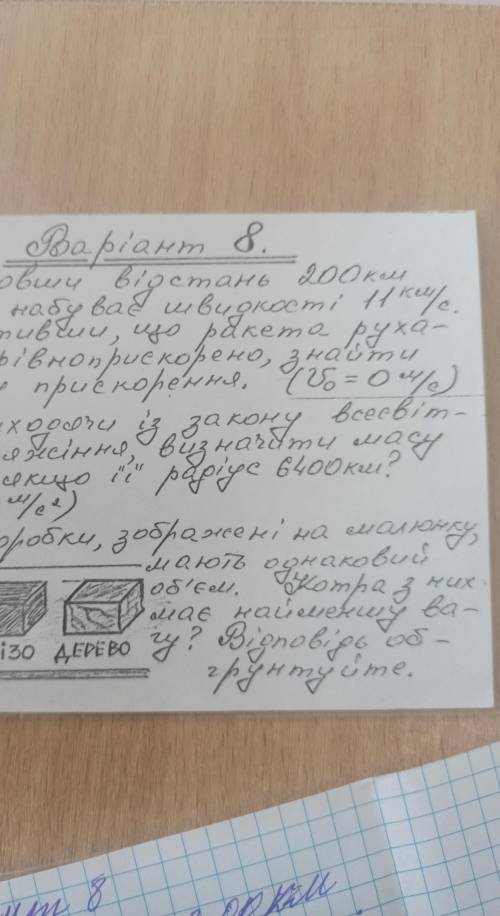 Варіант 8.
відстань 200 км
набуває швидкості 11 км/с.
що ракета руха-
рівноприскорено, знайти
прискорення. (V₀ = 0 м/с)
із закону всесвіт-
яжіння, визначити масу
якщо її радіус 6400 км?
м/с²)
оробки, зображені на малюнку,
мають однаковий
об'єм. Котра з них
має найменшу ва-
гу? Відповідь об-
ґрунтуйте.
ІЗО ДЕРЕВО
8
км